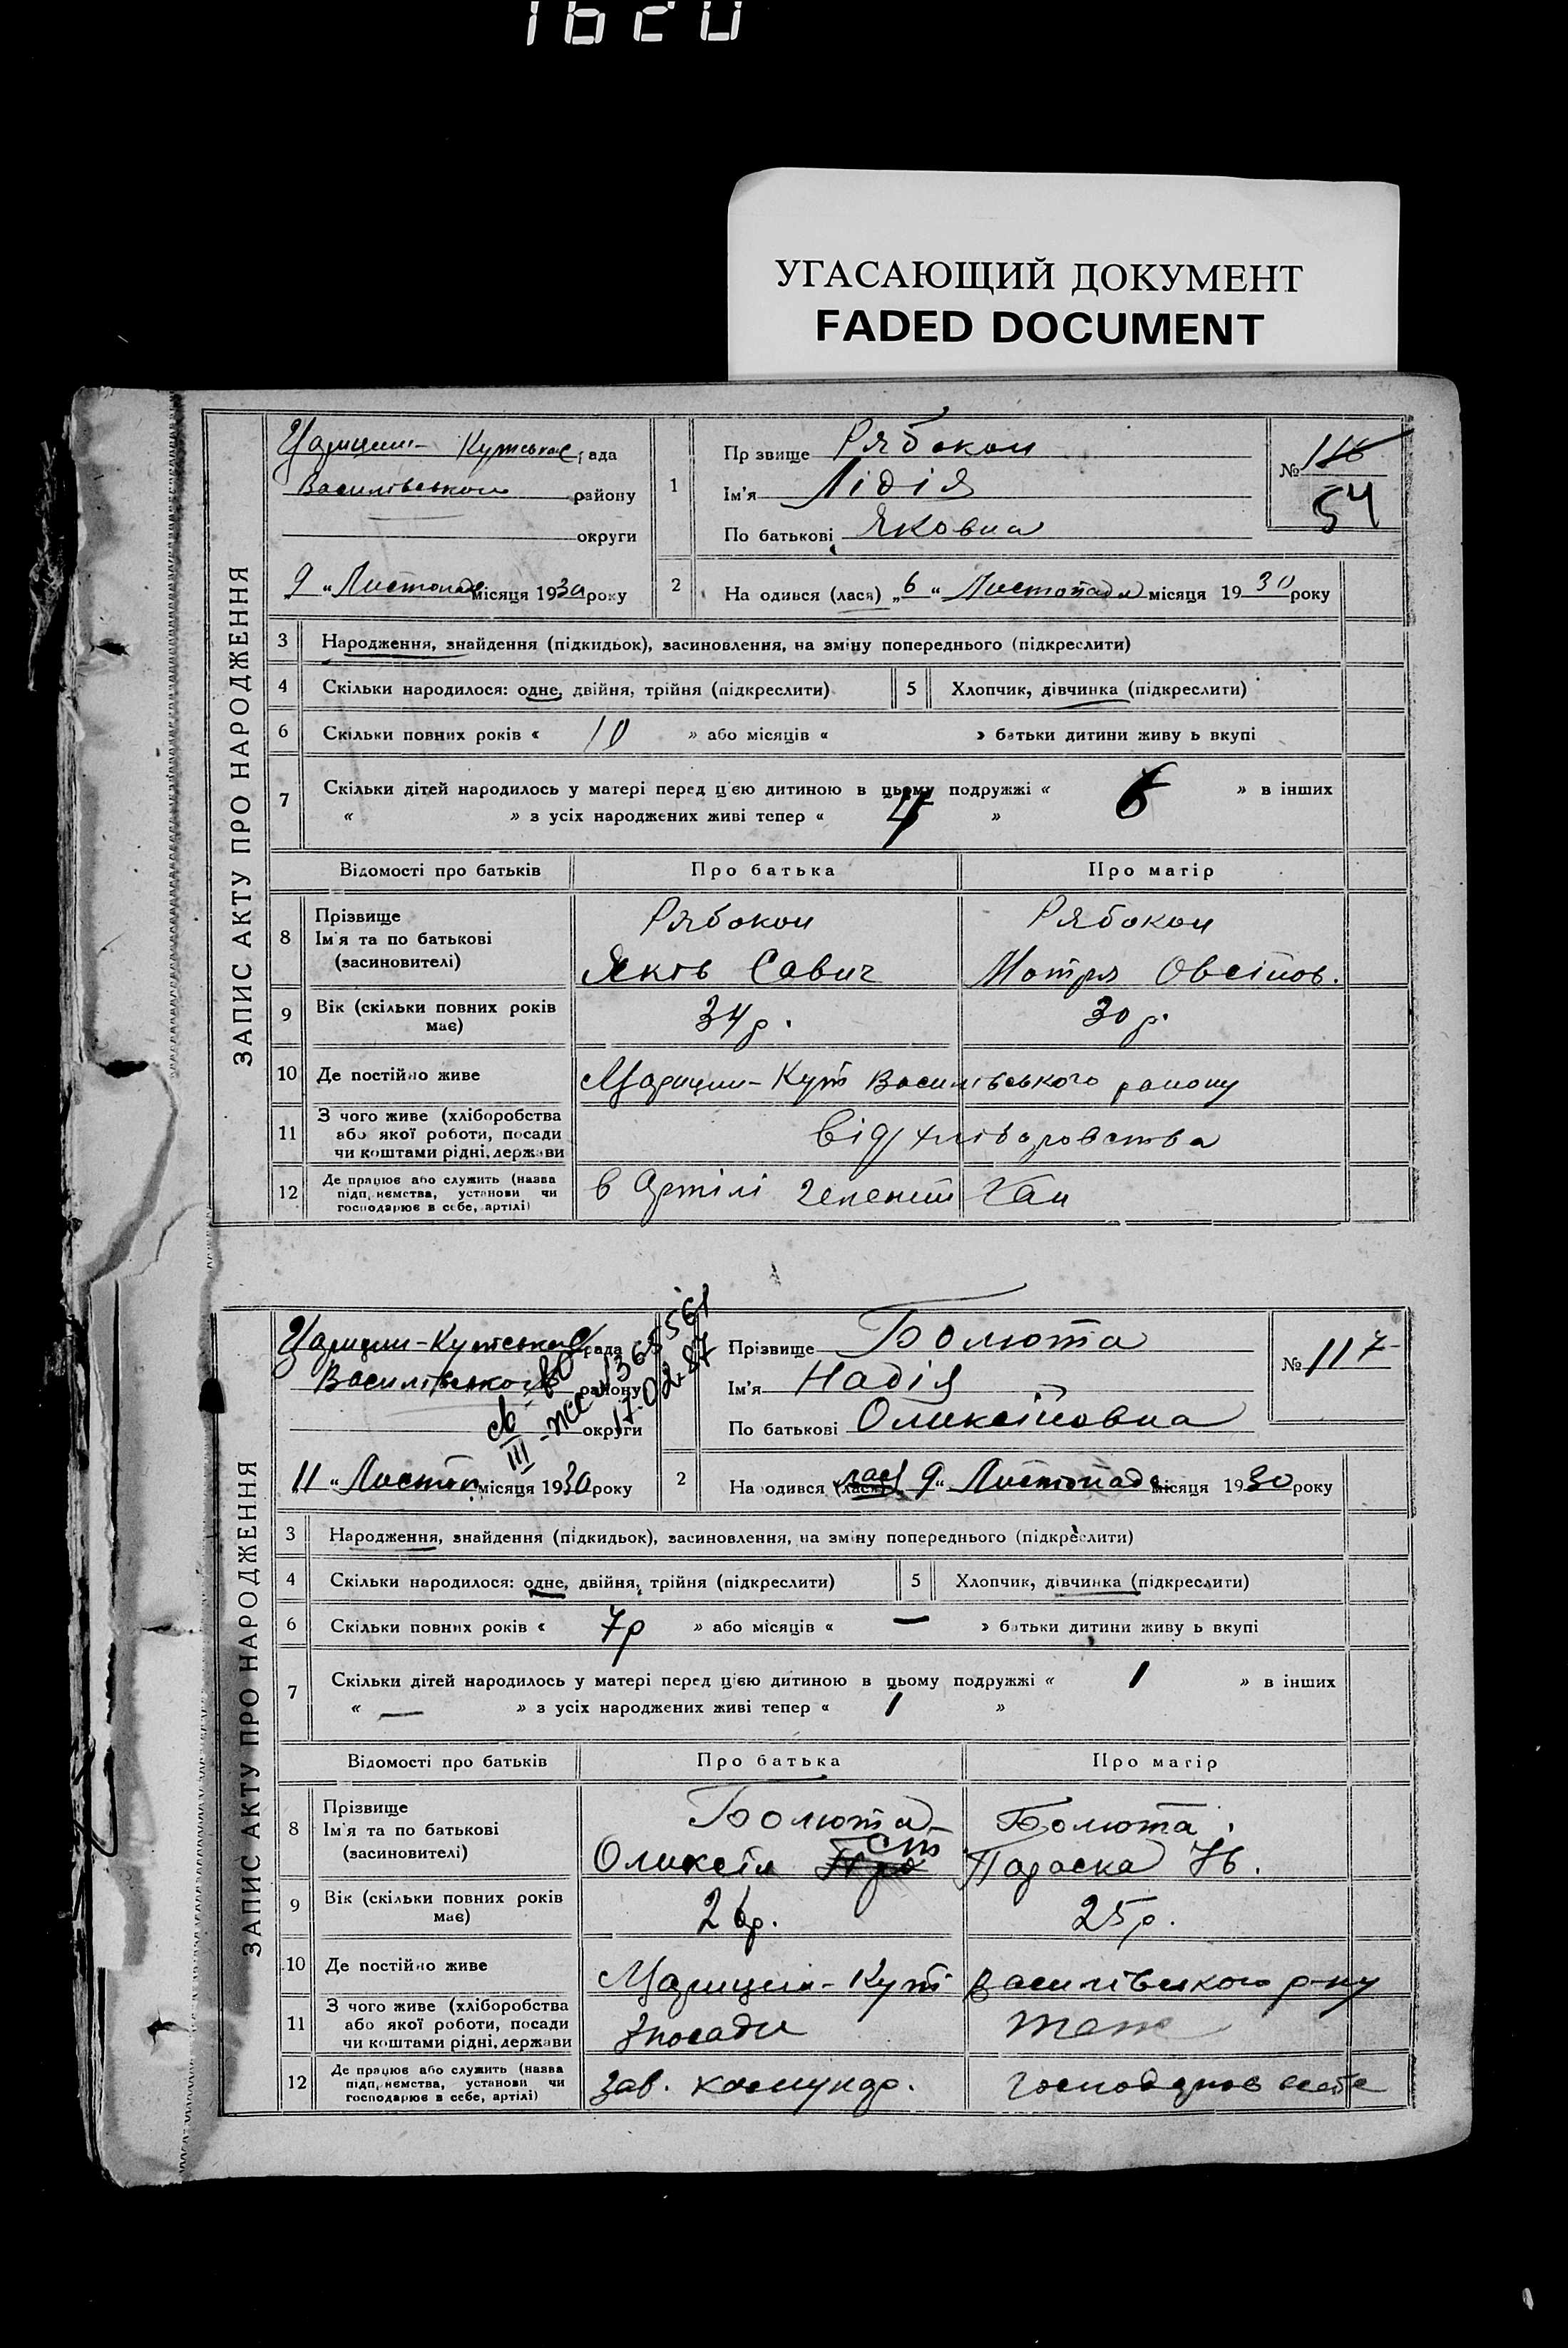 1620
УГАСАЮЩИЙ ДОКУМЕНТ
FADED DOCUMENT
ЗАПИС АКТУ ПРО НАРОДЖЕННЯ
Царицин- Кутською рада
Василівського району
округи
9 „ Листопада місяця 1930 року
1
Прізвище Рябокон
Ім'я Лідія
По батькові Яковна
№ 116
54
2 Народився (лася) „ 6 “ Листопада місяця 19 30 року
3 Народження, знайдення (підкидьок), засиновлення, на зміну попереднього (підкреслити)
4 Скільки народилося: одне, двійня, трійня (підкреслити) 5 Хлопчик, дівчинка (підкреслити)
6 Скільки повних років « 10 » або місяців « » батьки дитини живуть вкупі
7 Скільки дітей народилось у матері перед цією дитиною в цьому подружжі « 6 » в інших
« » з усіх народжених живі тепер « 4 »
Відомості про батьків Про батька Про матір
8 Прізвище Рябокон Рябокон
Ім'я та по батькові
(засиновителі) Яків Савич Мотря Овсійов.
9 Вік (скільки повних років має) 34 р. 30 р.
10 Де постійно живе Царицин-Кут Василівського району
11 З чого живе (хліборобства
або якої роботи, посади від хліборобства
чи коштами рідні, держави
12 Де працює або служить (назва
підприємства, установи чи в Артілі Зелений Гай
господарює в себе, артілі)
ЗАПИС АКТУ ПРО НАРОДЖЕННЯ
Царицин-Кутською рада
Василівського району
округи
св-во
III-ЖС № 365561
17.02.87
11 “ Листоп. місяця 1930 року
Прізвище Болюта
Ім'я Надія
По батькові Оликсійовна
№ 117
2 Народився (лася) лася 9 “ Листопада місяця 1930 року
3 Народження, знайдення (підкидьок), засиновлення, на зміну попереднього (підкреслити)
4 Скільки народилося: одне, двійня, трійня (підкреслити) 5 Хлопчик, дівчинка (підкреслити)
6 Скільки повних років « 7р » або місяців « — » батьки дитини живуть вкупі
7 Скільки дітей народилось у матері перед цією дитиною в цьому подружжі « 1 » в інших
« — » з усіх народжених живі тепер « 1 »
Відомості про батьків Про батька Про матір
8 Прізвище Болюта Болюта
Ім'я та по батькові
(засиновителі) Оликсій Ст Параска Ів.
9 Вік (скільки повних років має) 26р. 25р.
10 Де постійно живе Царицин-Кут Василівського р-ну
11 З чого живе (хліборобства
або якої роботи, посади з посади теж
чи коштами рідні, держави
12 Де працює або служить (назва
підприємства, установи чи зав. господарює в себе
господарює в себе, артілі)